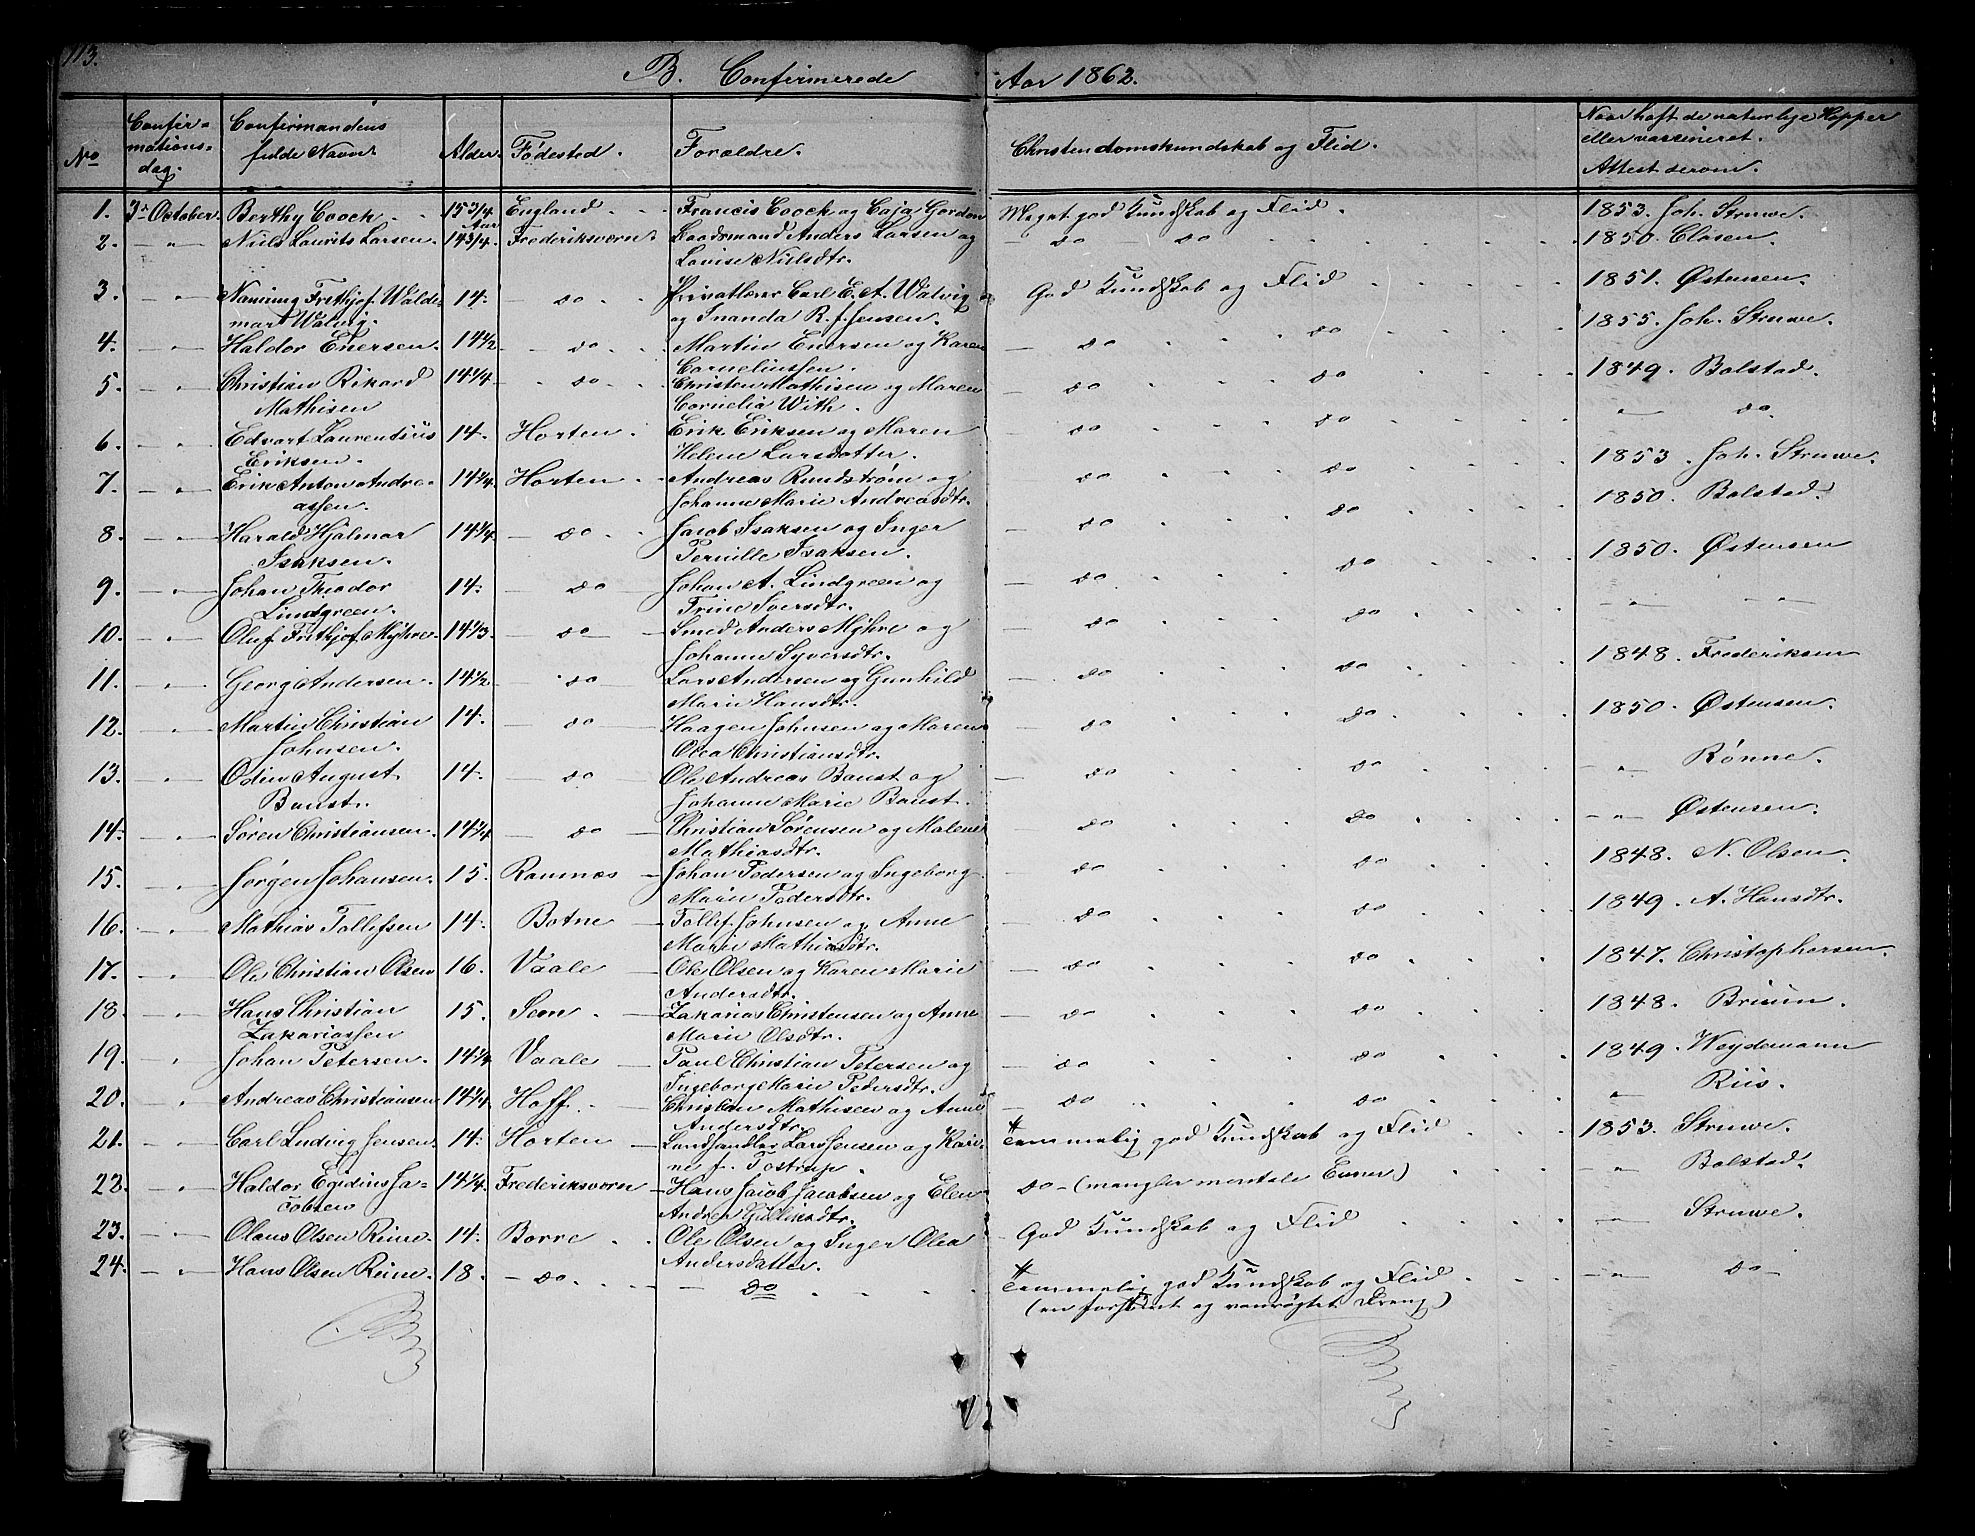 113.
B. Confirmerede Aar 1862.
No
Confir=
mations=
dag.
Confirmandens
fulde Navn.
Alder.
Fødested.
Forældre.
Christendomskundskab og Flid.
Naar haft de naturlige Kopper
eller vaccineret.
Attest derom.
1. 3die October. Berthy Coock 15 3/4 Aar England. Francis Coock og Caja Gordon Meget god Kundskab og Flid. 1853. Joh. Struwe.
2. — " — Niels Laurits Larsen. 14 3/4. Frederiksværn. Baadsmand Anders Larsen og — do do 1850. Clasen.
Lovise Nielsdtr.
3. — " — Nanning Frithjof Walde= 14. — do Privatlærer Carl E. A. Walvig God Kundskab og Flid 1851. Østensen.
mar Walvig. og Inanda R. f. Jensen.
4. — " — Haldor Enersen. 14 1/2 — do Martin Enersen og Karen — do do 1855. Joh. Struwe.
Corneliussen.
5. — " — Christian Rikard 14 1/4 do Christen Mathisen og Maren do do 1849. Bolstad.
Mathisen Cornelia With.
6. — " — Edvart Laurentius 14. Horten. Erik Eriksen og Maren do do — " — do.
Eriksen. Helene Larsdatter.
7. — " — Erik Anton Andre= 14 1/4 Horten Andreas Rundstrøm og do do 1853. Joh. Struwe.
assen. Johanne Marie Andreasdtr.
8. — " — Harald Hjalmar 14 1/4 — do Jacob Isaksen og Inger — do do 1850. Bolstad.
Isaksen. Pernille Isaksen.
9. — " — Johan Theodor 14. — do Johan A. Lindgreen og — do do 1850. Østensen
Lindgreen. Trine Iversdtr.
10. — " — Oluf Frithjof Myhre 14 1/3. — do — Smed Anders Myhre og — do do — " — — " —
Johanne Syversdtr.
11. — " — Georg Andersen. 14 1/2 — do — Lars Andersen og Gunhild do do 1848. Frederiksen
Marie Hansdtr.
12. — " — Martin Christian 14. — do — Haagen Johnsen og Maren do do 1850. Østensen.
Johnsen. Olea Christiansdtr.
13. — " — Odin August 14. — do — Ole Andreas Baust og — do do — " — Rønne.
Baust. Johanne Marie Baust.
14. — " — Søren Christiansen. 14 1/4 — do — Christian Sørensen og Malene do do — " — Østensen.
Mathiasdtr.
15. — " — Jørgen Johansen. 15. Ramnæs — Johan Pedersen og Ingeborg do do 1848. N. Olsen.
Marie Pedersdtr.
16. — " — Mathias Tollefsen 14. Botne — Tollef Johnsen og Anne — do do 1849. A. Hansdtr.
Marie Mathiasdtr.
17. — " — Ole Christian Olsen 16. Vaale — Ole Olsen og Karen Marie — do do 1847. Christophersen.
Andersdtr.
18. — " — Hans Christian 15. Sem. — Zakarias Christensen og Anne — do do 1848. Bruun.
Zakariassen Marie Olsdtr.
19. — " — Johan Petersen. 14 1/4 Vaale — Paul Christian Petersen og — do do 1849. Weydemann
Ingeborg Marie Pedersdtr.
20. — " — Andreas Christiansen 14 1/4 Hoff. — Christian Mathisen og Anne — do do — " — Riis.
Andersdtr.
21. — " — Carl Ludvig Jensen. 14. Horten — Landhandler Lars Jensen og Kari= Temmelig god Kundskab og Flid 1853. Struwe.
ne f. Tostrup.
22. — " — Haldor Egidius Ja= 14 1/4. Frederiksværn — Hans Jacob Jacobsen og Elen do — (mangler mentale Evner) — " — Bolstad.
cobsen Andrea Gulliksdtr.
23. — " — Olaus Olsen Reine. 14. Borre Ole Olsen og Inger Olea — God Kundskab og Flid — " — Struwe.
24. — " — Hans Olsen Reine. 18. — do Andersdatter.
— do Temmelig god Kundskab og Flid — " — do —
(en forsømt og vanrøgtet Dreng)